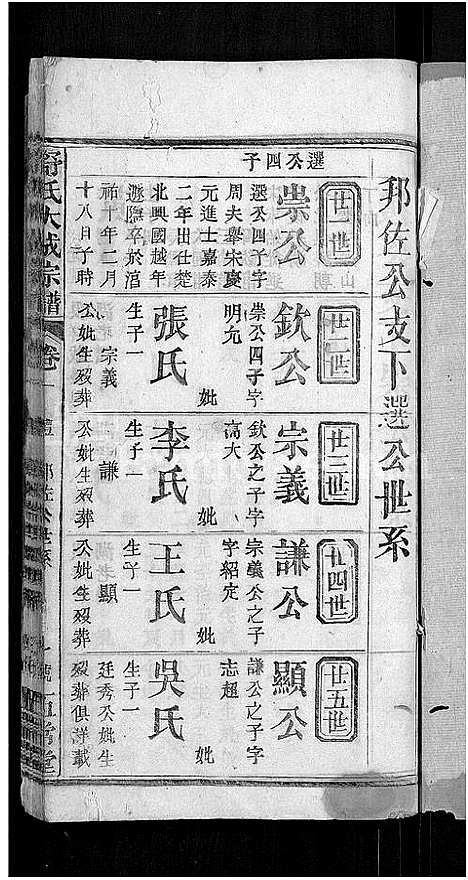 邦佐公支下選公世系
選公四子
廿一世
崇公
選公四子字
周夫舉宋慶
元進士嘉泰
二年出仕楚
北興國越年
遯隱卒於涫
祐十年二月
十八日子時
廿二世
欽公
崇公四子字
明允
妣
張氏
生子一
宗義
公妣生歿葬
廿三世
宗義
欽公之子字
高大
妣
李氏
生子一
謙
公妣生歿葬
廿四世
謙公
宗義公之子
字紹定
妣
王氏
生子一
顯
公妣生歿葬
廿五世
顯公
謙公之子字
志超
妣
吳氏
生子一
廷秀公妣生
歿葬俱詳載
舒氏大成宗譜
卷一
邦佐公世系